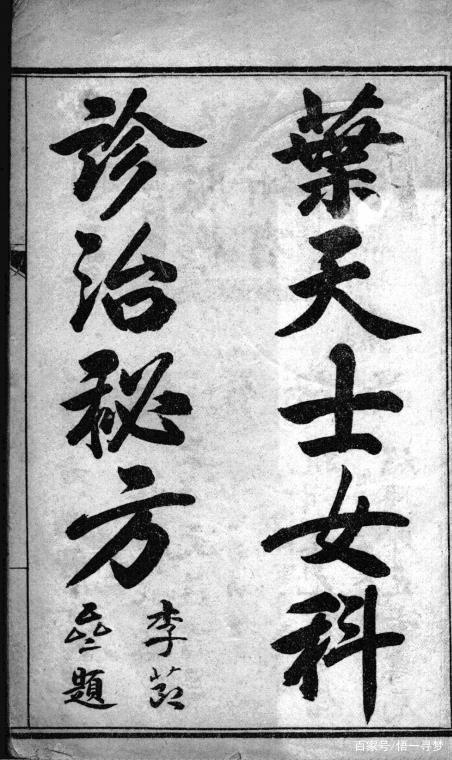 葉天士女科
診治秘方
李
題
百家号/悟一寻梦